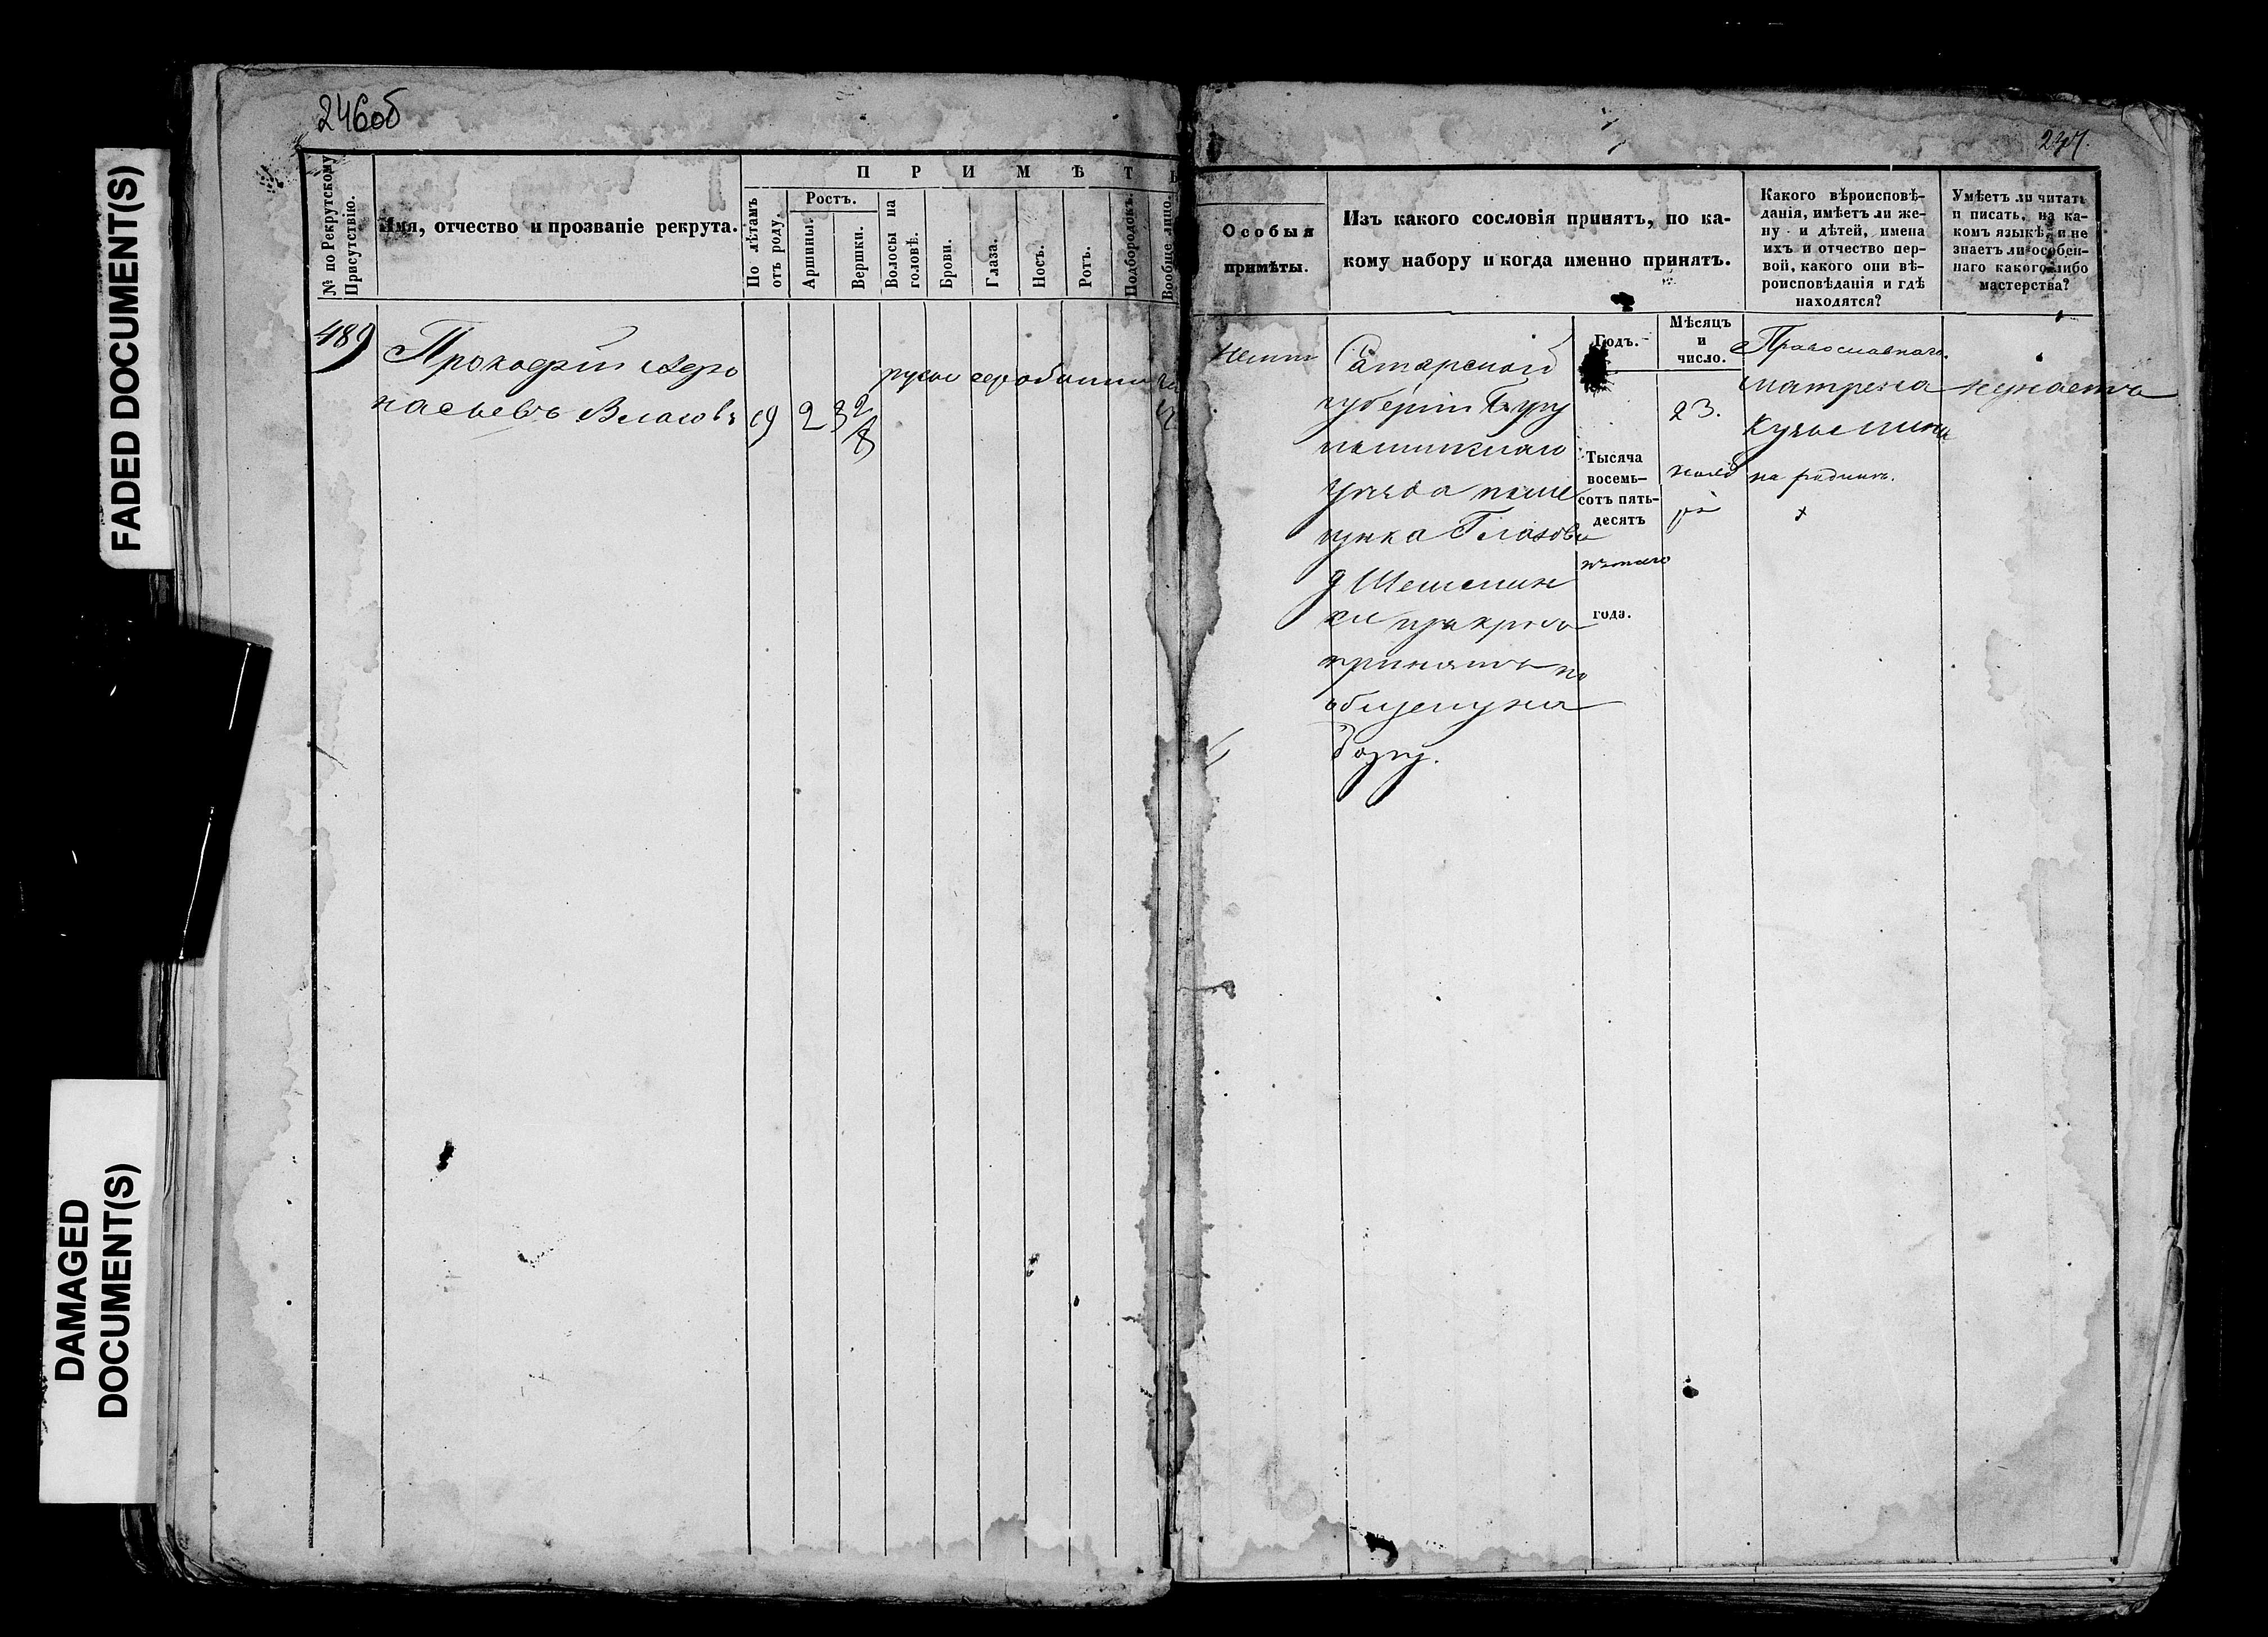 FADED DOCUMENT(S)
DAMAGED DOCUMENT(S)
246об
247.
№ по Рекрутскому Присутствію.
Имя, отчество и прозваніе рекрута.
ПРИМѢТЫ
По лѣтамъ отъ роду.
Ростъ.
Аршины.
Вершки.
Волосы на головѣ.
Брови.
Глаза.
Носъ.
Ротъ.
Подбородокъ.
Вообще лицо.
489
Прокофій Афо
насьевъ Власовъ
19
2
3 2/8
русые
Особыя
примѣты.
Изъ какого сословія принятъ, по ка-
кому набору и когда именно принятъ.
Какого вѣроисповѣ-
данія, имѣетъ ли же-
ну и дѣтей, имена
ихъ и отчество пер-
вой, какого они вѣ-
роисповѣданія и гдѣ
находятся?
Умѣетъ ли читать
и писать, на ка-
комъ языкѣ, и не
знаетъ ли особен-
наго какого либо
мастерства?
нетъ
Самарской
губерніи Бугу
льминскаго
уезда поме
щика Глазова
д Шешмин
ки
принятъ по
общему на
бору.
Годъ.
Тысяча
восемь-
сотъ пять-
десятъ
пятого
года.
Мѣсяцъ
и
число.
23.
нояб
ря
Православнаго.
Матрена
Кузьмина
на родине.
х
неумеетъ